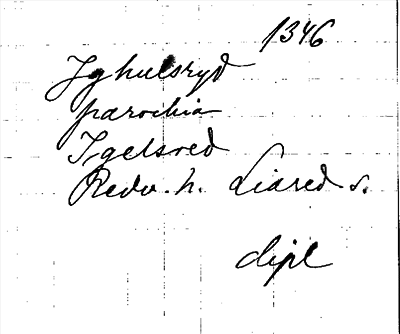 1346
Jghulsryd
parochia
Igelsred
Redv. h. Liared s.
dipl